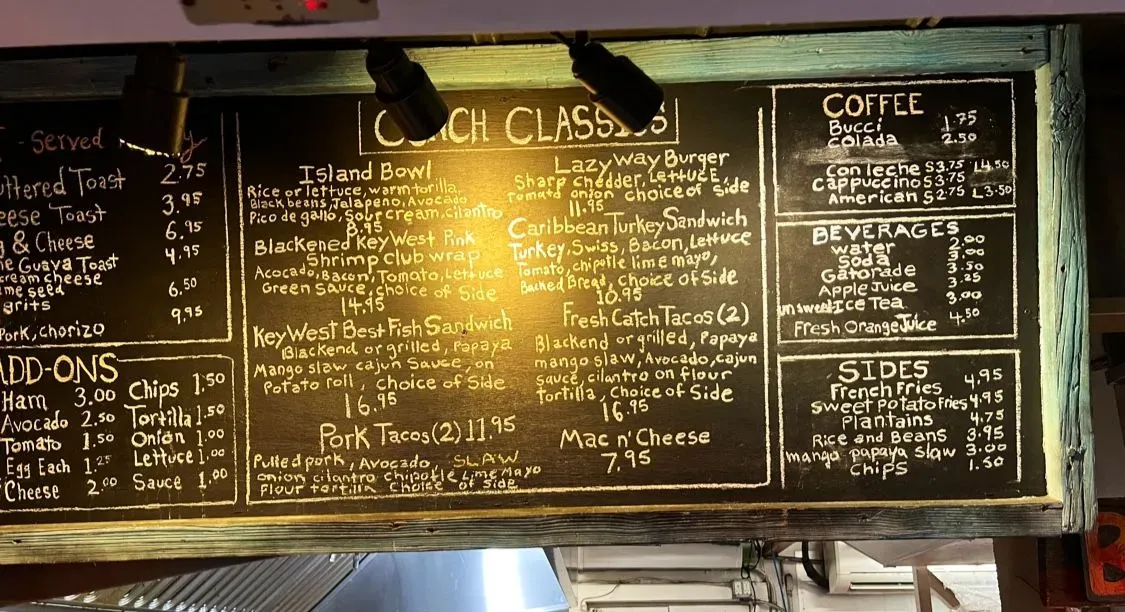 - Served
ttered Toast 2.75
ese Toast 3.95
& Cheese 6.95
e Guava Toast 4.95
ream cheese
me seed
grits 6.50
Pork, chorizo 9.95
ADD-ONS
Ham 3.00
Avocado 2.50
Tomato 1.50
Egg Each 1.25
Cheese 2.00
Chips 1.50
Tortilla 1.50
Onion 1.00
Lettuce 1.00
Sauce 1.00
CLASSICS
Island Bowl
Rice or lettuce, warm torilla,
Black beans, Jalapeno, Avocado
Pico de gallo, Sour cream, cilantro
8.95
Blackened Key West Pink
Shrimp Club wrap
Acocado, Bacon, Tomato, Lettuce
Green Sauce, choice of Side
14.95
Key West Best Fish Sandwich
Blackend or grilled, Papaya
Mango slaw cajun Sauce, on
Potato roll, choice of Side
16.95
Pork Tacos (2) 11.95
Pulled pork, Avocado, SLAW
onion cilantro chipotle Lime Mayo
Flour tortilla Choice of Side
Lazy Way Burger
Sharp chedder, Lettuce
Tomato onion choice of Side
11.95
Caribbean Turkey Sandwich
Turkey, Swiss, Bacon, Lettuce
Tomato, chipotle lime mayo,
Backed Bread, choice of Side
10.95
Fresh Catch Tacos (2)
Blackend or grilled, Papaya
mango slaw, Avocado, cajun
sauce, cilantro on flour
tortilla, choice of Side
16.95
Mac n' Cheese
7.95
COFFEE
Bucci 1.75
Colada 2.50
Con leche S 3.75 L 4.50
Cappuccino S 3.75
American S 2.75 L 3.50
BEVERAGES
Water 2.00
Soda 3.00
Gatorade 3.50
Apple Juice 3.25
unsweet Ice Tea 3.00
Fresh Orange Juice 4.50
SIDES
French Fries 4.95
Sweet Potato Fries 4.95
Plantains 4.75
Rice and Beans 3.95
mango papaya slaw 3.00
Chips 1.50